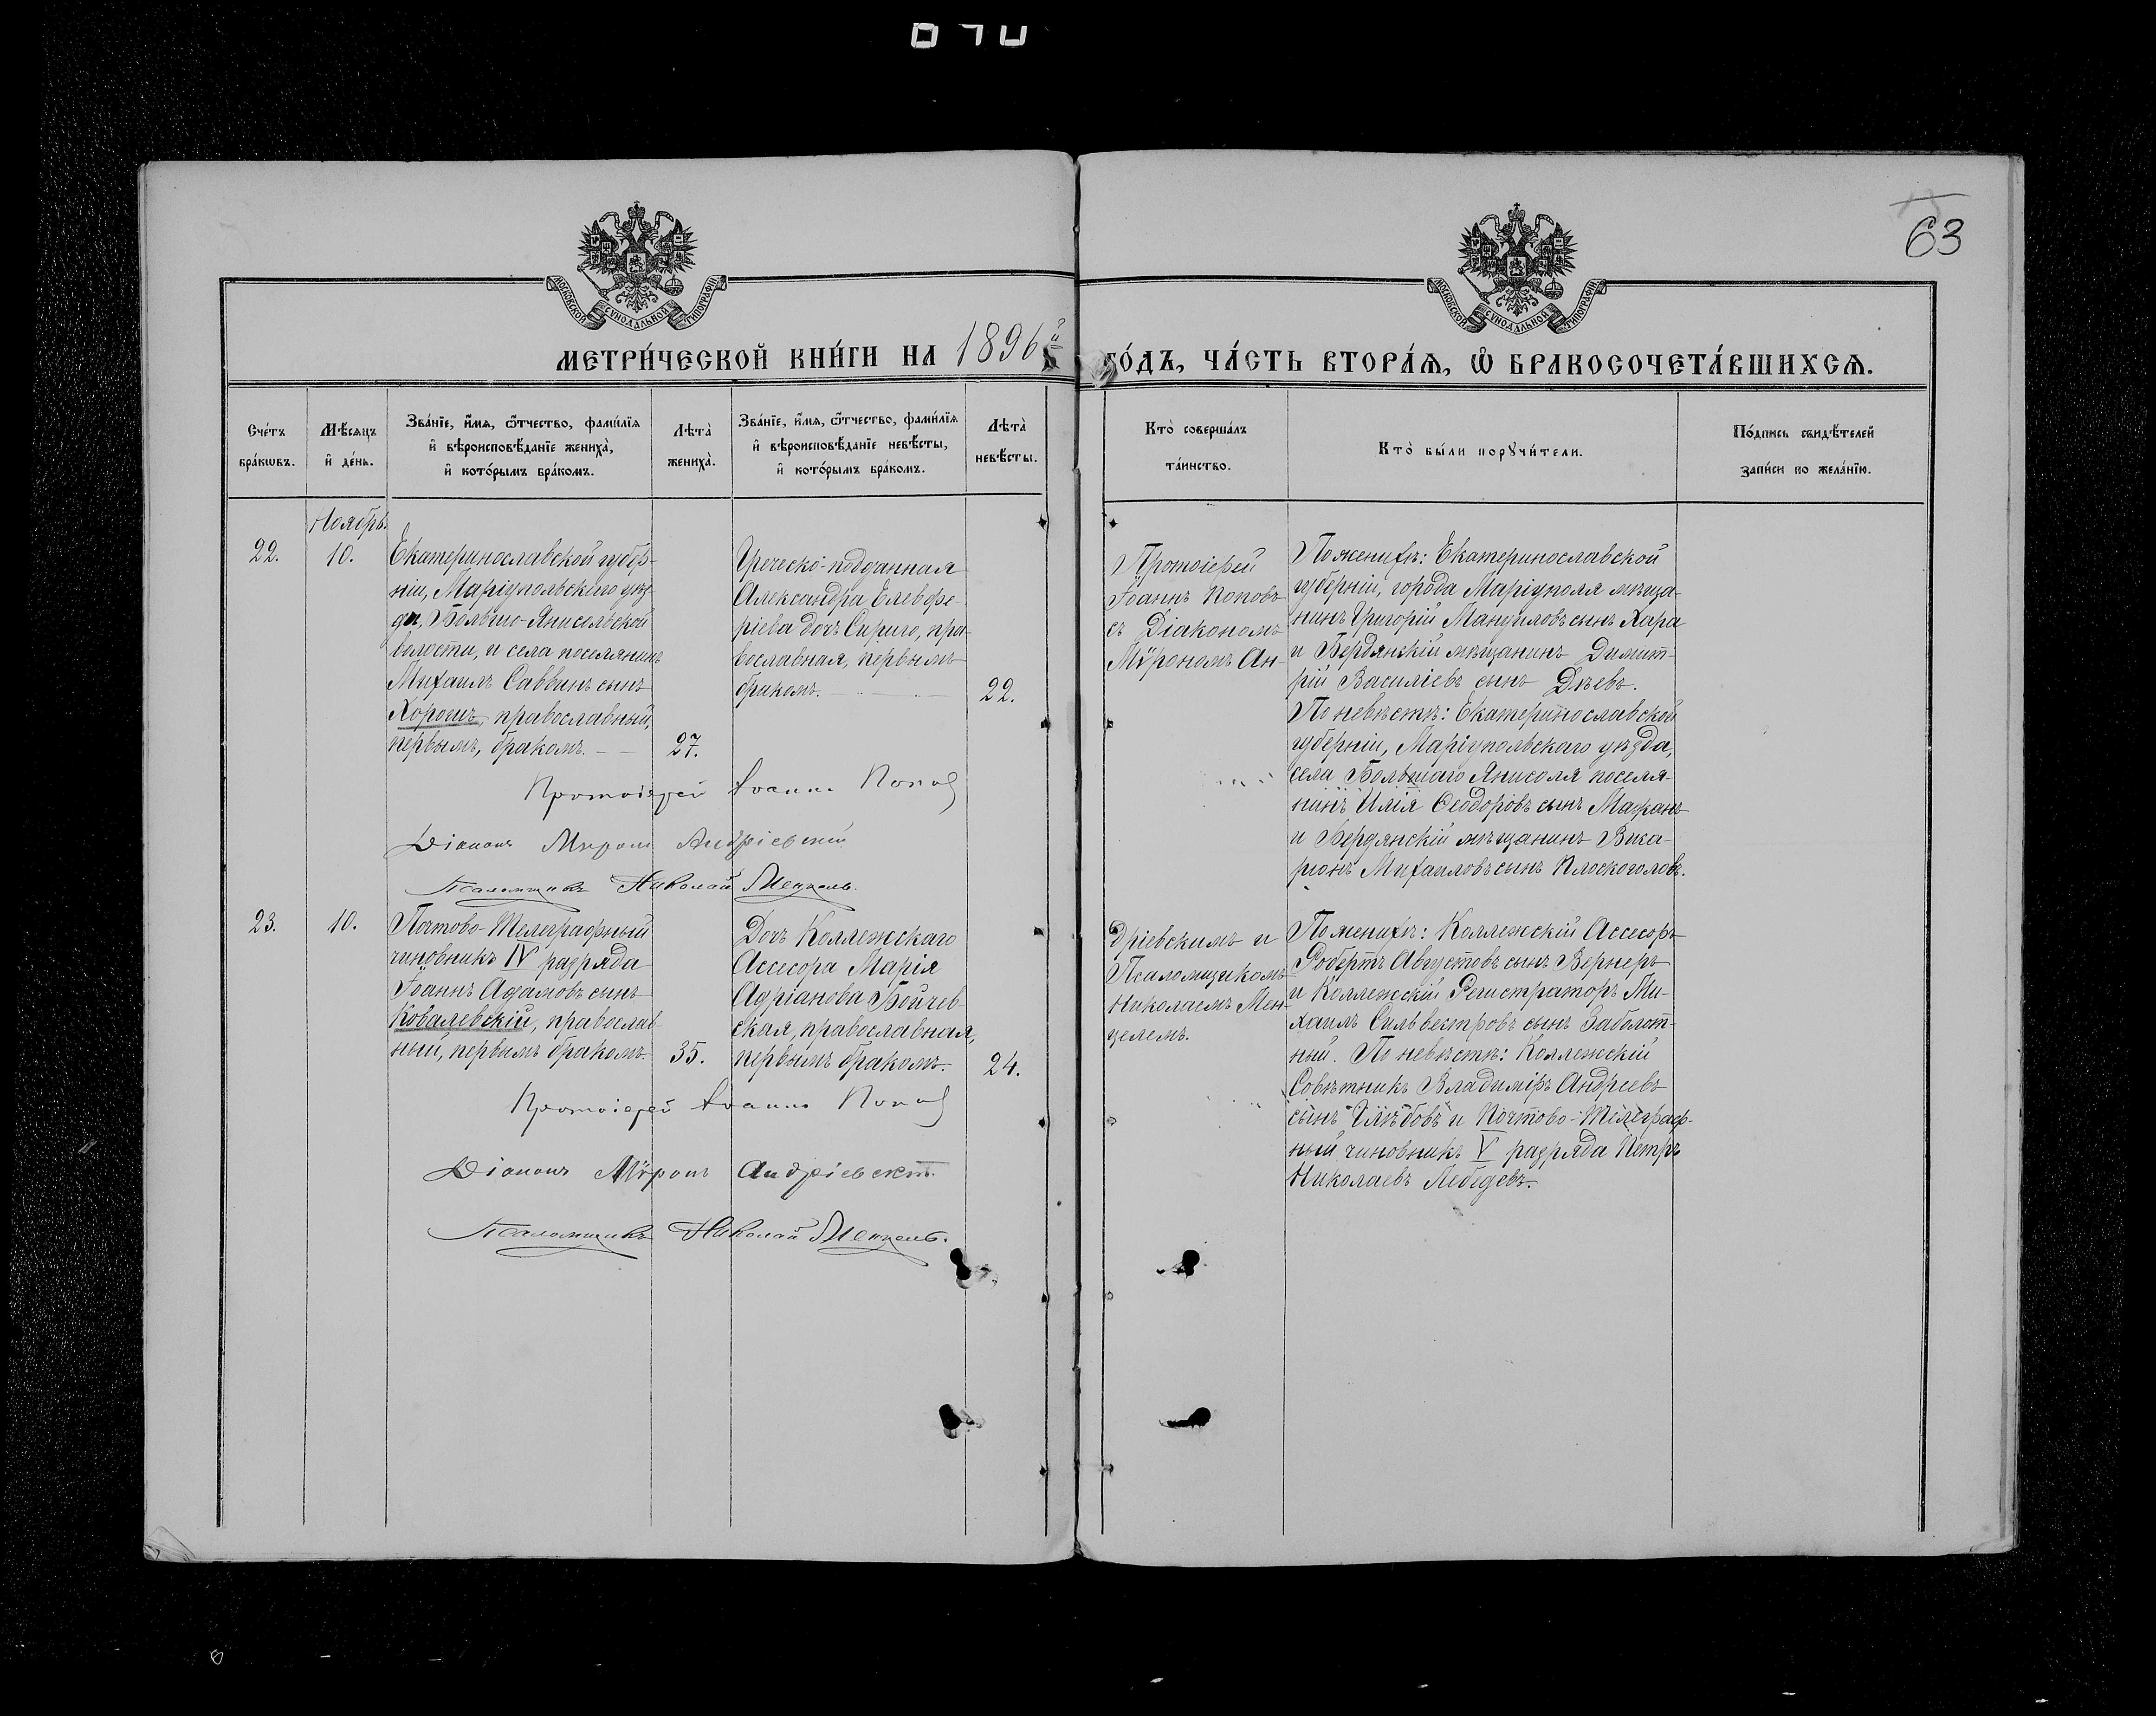 63
МОСКОВСКОЙ СѴНОДАЛЬНОЙ ТИПОГРАФІИ
МОСКОВСКОЙ СѴНОДАЛЬНОЙ ТИПОГРАФІИ
МЕТРИ́ЧЕСКОЙ КНИ́ГИ НА 1896й ГО́ДЪ, ЧА́СТЬ ВТОРА́Ѧ, Ѿ БРАКОСОЧЕТА́ВШИХСѦ.
Сче́тъ
бра́кѡвъ.
Мѣ́сяцъ
и҆ де́нь.
Зва́нїе, и҆́мѧ, ѻ҆́тчество, фами́лїѧ
и҆ вѣроисповѣ́данїе жениха̀,
и҆ кото́рымъ бра́комъ.
Лѣта̀
жениха̀.
Зва́нїе, и҆́мѧ, ѻ҆́тчество, фами́лїѧ
и҆ вѣроисповѣ́данїе невѣ́сты,
и҆ кото́рымъ бра́комъ.
Лѣта̀
невѣ́сты.
Кто̀ соверша́лъ
та́инство.
Кто̀ бы́ли порꙋчи́тели.
По́дпись свидѣ́телей
за́писи по жела́нїю.
Ноябрь.
22.
10.
Екатеринославской губер-
ніи, Маріупольскаго уѣз-
да, Больше-Янисольской
волости, и села поселянинъ
Михаилъ Саввинъ сынъ
Хорошъ, православный,
первымъ, бракомъ.
27.
Греческо-подданная
Александра Елевфе-
ріева дочь Сириго, пра-
вославная, первымъ
бракомъ.
22.
Протоіерей
Іоаннъ Поповъ
съ Діакономъ
Мѵрономъ Ан-
По женихѣ: Екатеринославской
губерніи, города Маріуполя мѣща-
нинъ Григорій Мануиловъ сынъ Хара
и Бердянскій мѣщанинъ Димит-
рій Василіевъ сынъ Дѣевъ.
По невѣстѣ: Екатеринославской
губерніи, Маріупольскаго уѣзда,
села Большаго Янисоля поселя-
нинъ Илія Ѳеодоровъ сынъ
и Бердянскій мѣщанинъ Вика-
ріонъ Михаиловъ сынъ Плоскоголовъ.
Протоіерей Іоаннъ Попов
Діаконъ Миронъ Андріевскій
Псаломщикъ Николай Менцель.
23.
10.
Почтово-Телеграфный
чиновникъ IV разряда
Іоаннъ Адамовъ сынъ
Ковалевскій, православ-
ный, первымъ бракомъ.
35.
Дочь Коллежскаго
Ассесора Марія
Адріанова Бойчев-
ская, православная,
первымъ бракомъ.
24.
дріевскимъ и
Псаломщикомъ
Николаемъ Мен-
целемъ.
По женихѣ: Коллежскій Ассесоръ
Робертъ Августовъ сынъ Вернеръ
и Коллежскій Регистраторъ Ми-
хаилъ Сильвестровъ сынъ Заболот-
ный. По невѣстѣ: Коллежскій
Совѣтникъ Владиміръ Андреевъ
сынъ Глѣбовъ и Почтово-Телеграф-
ный чиновникъ V разряда Петръ
Николаевъ Лебедевъ.
Протоіерей Іоаннъ Попов
Діаконъ Мѵронъ Андріевскій.
Псаломщикъ Николай Менцель.